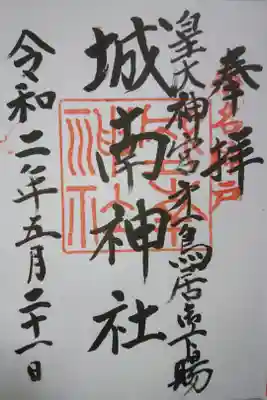 奉拝
皇大神宮 鳥居 下賜
城南神社
令和二年五月二十一日